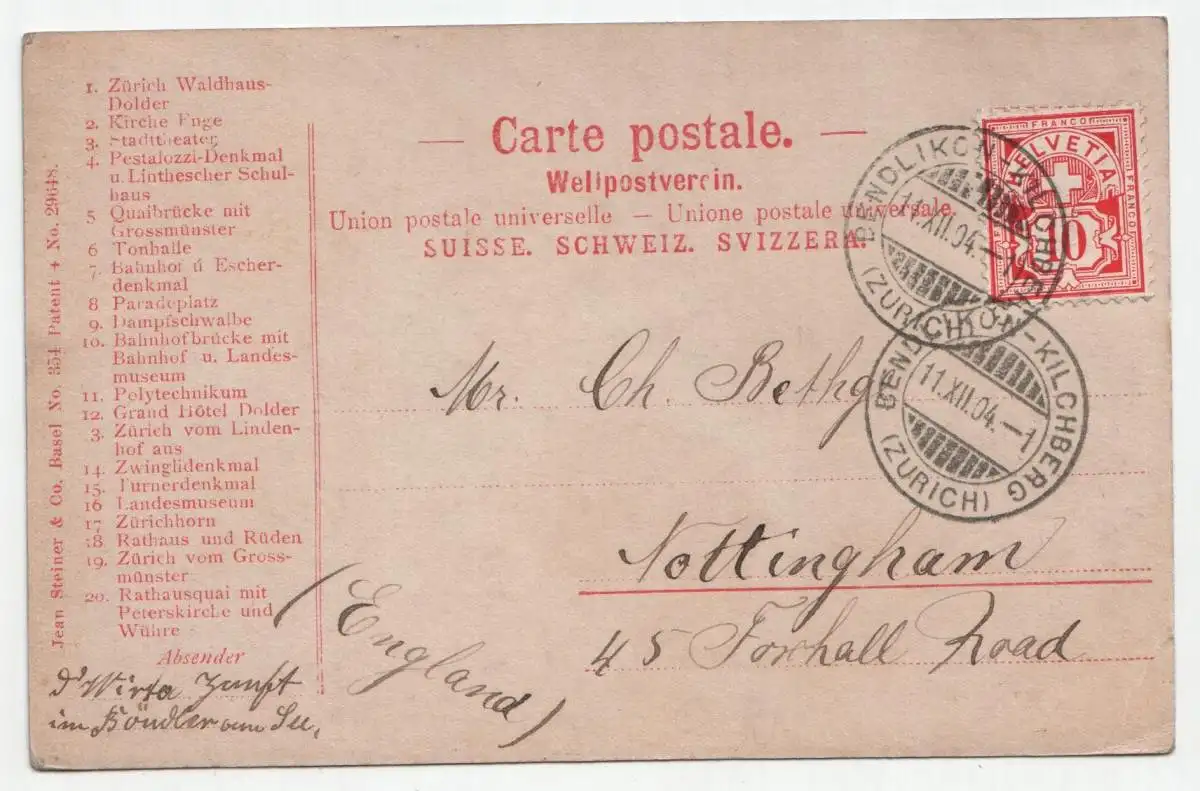 1. Zürich Waldhaus-
Dolder
2. Kirche Enge
3. Stadttheater
4. Pestalozzi-Denkmal
u. Linthescher Schul-
haus
5 Quaibrücke mit
Grossmünster
6 Tonhalle
7. Bahnhof u Escher-
denkmal
8 Paradeplatz
9. Dampfschwalbe
10. Bahnhofbrücke mit
Bahnhof u. Landes-
museum
11. Polytechnikum
12. Grand Hôtel Dolder
3. Zürich vom Linden-
hof aus
14. Zwinglidenkmal
15. Turnerdenkmal
16 Landesmuseum
17 Zürichhorn
18 Rathaus und Rüden
19. Zürich vom Gross-
münster
20. Rathausquai mit
Peterskirche und
Wühre
Absender
d'Wirta Zunft
im am See,
Jean Steiner & Co, Basel No. 354 Patent + No. 29648.
— Carte postale. —
Weltpostverein.
Union postale universelle — Unione postale universale.
SUISSE. SCHWEIZ. SVIZZERA.
FRANCO
HELVETIA
FRANCO
FRANCO
10
BENDLIKON-KILCHBERG
11.XII.04.–1
(ZÜRICH)
BENDLIKON-KILCHBERG
11.XII.04.–1
(ZÜRICH)
Mr. Ch. Bethge
Nottingham
45 Foxhall Road
(England)